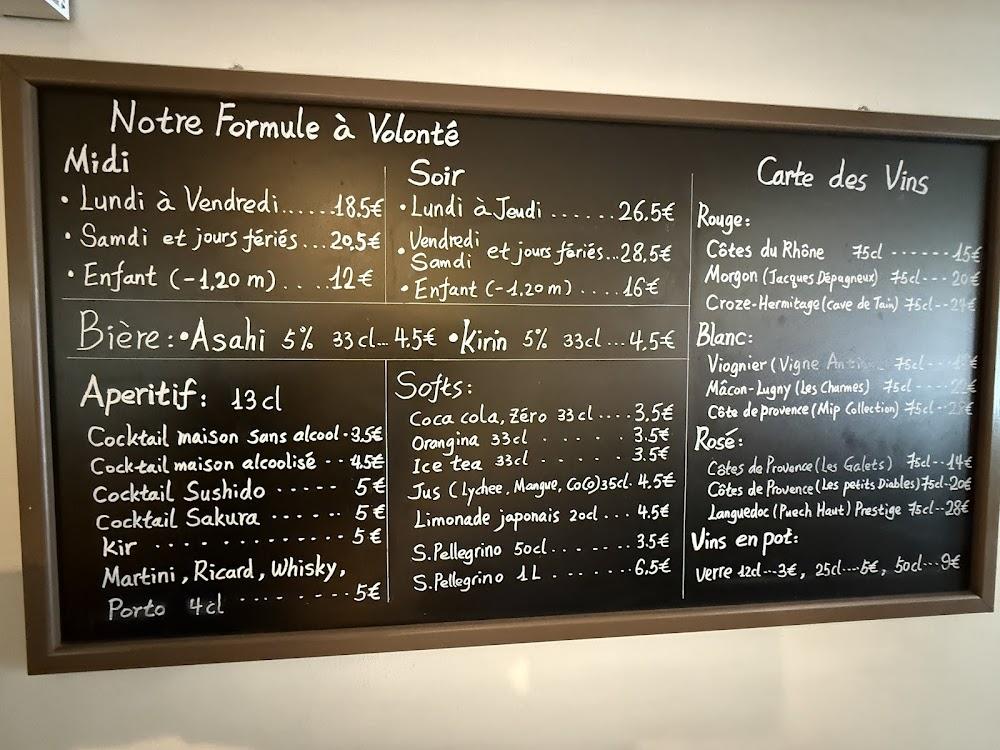 Notre Formule à Volonté
Midi
• Lundi à Vendredi......18.5€
• Samdi et jours fériés...20,5€
• Enfant (-1,20 m)....12€
Soir
• Lundi à Jeudi ......26.5€
• Vendredi
Samdi et jours fériés...28,5€
• Enfant (-1,20m)....16€
Bière: •Asahi 5% 33cl...4.5€ •Kirin 5% 33cl...4,5€
Aperitif: 13cl
Cocktail maison sans alcool-3.5€
Cocktail maison alcoolisé --4.5€
Cocktail Sushido -----5€
Cocktail Sakura ------5€
Kir -----------5€
Martini, Ricard, Whisky,
Porto 4cl --------5€
Softs:
Coca cola, Zéro 33cl....3,5€
Orangina 33cl .....3.5€
Ice tea 33cl .....3.5€
Jus (Lychee, Mangue, CoCo)35cl.4,5€
Limonade japonais 20cl...4.5€
S.Pellegrino 50cl........3.5€
S.Pellegrino 1L........6.5€
Carte des Vins
Rouge:
Côtes du Rhône 75cl ------15€
Morgon (Jacques Dépagneux) 75cl---20€
Croze-Hermitage(cave de Tain) 75cl--
Blanc:
Viognier (Vigne 75cl
Mâcon-Lugny (Les Charmes) 75cl ----22€
Côte de provence (Mip Collection) 75cl--28€
Rosé:
Côtes de Provence (Les Galets) 75cl--14€
Côtes de Provence (Les petits Diables)75cl-20€
Languedoc (Puech Haut) Prestige 75cl--28€
Vins en pot:
Verre 12cl---3€, 25cl---5€, 50cl---9€